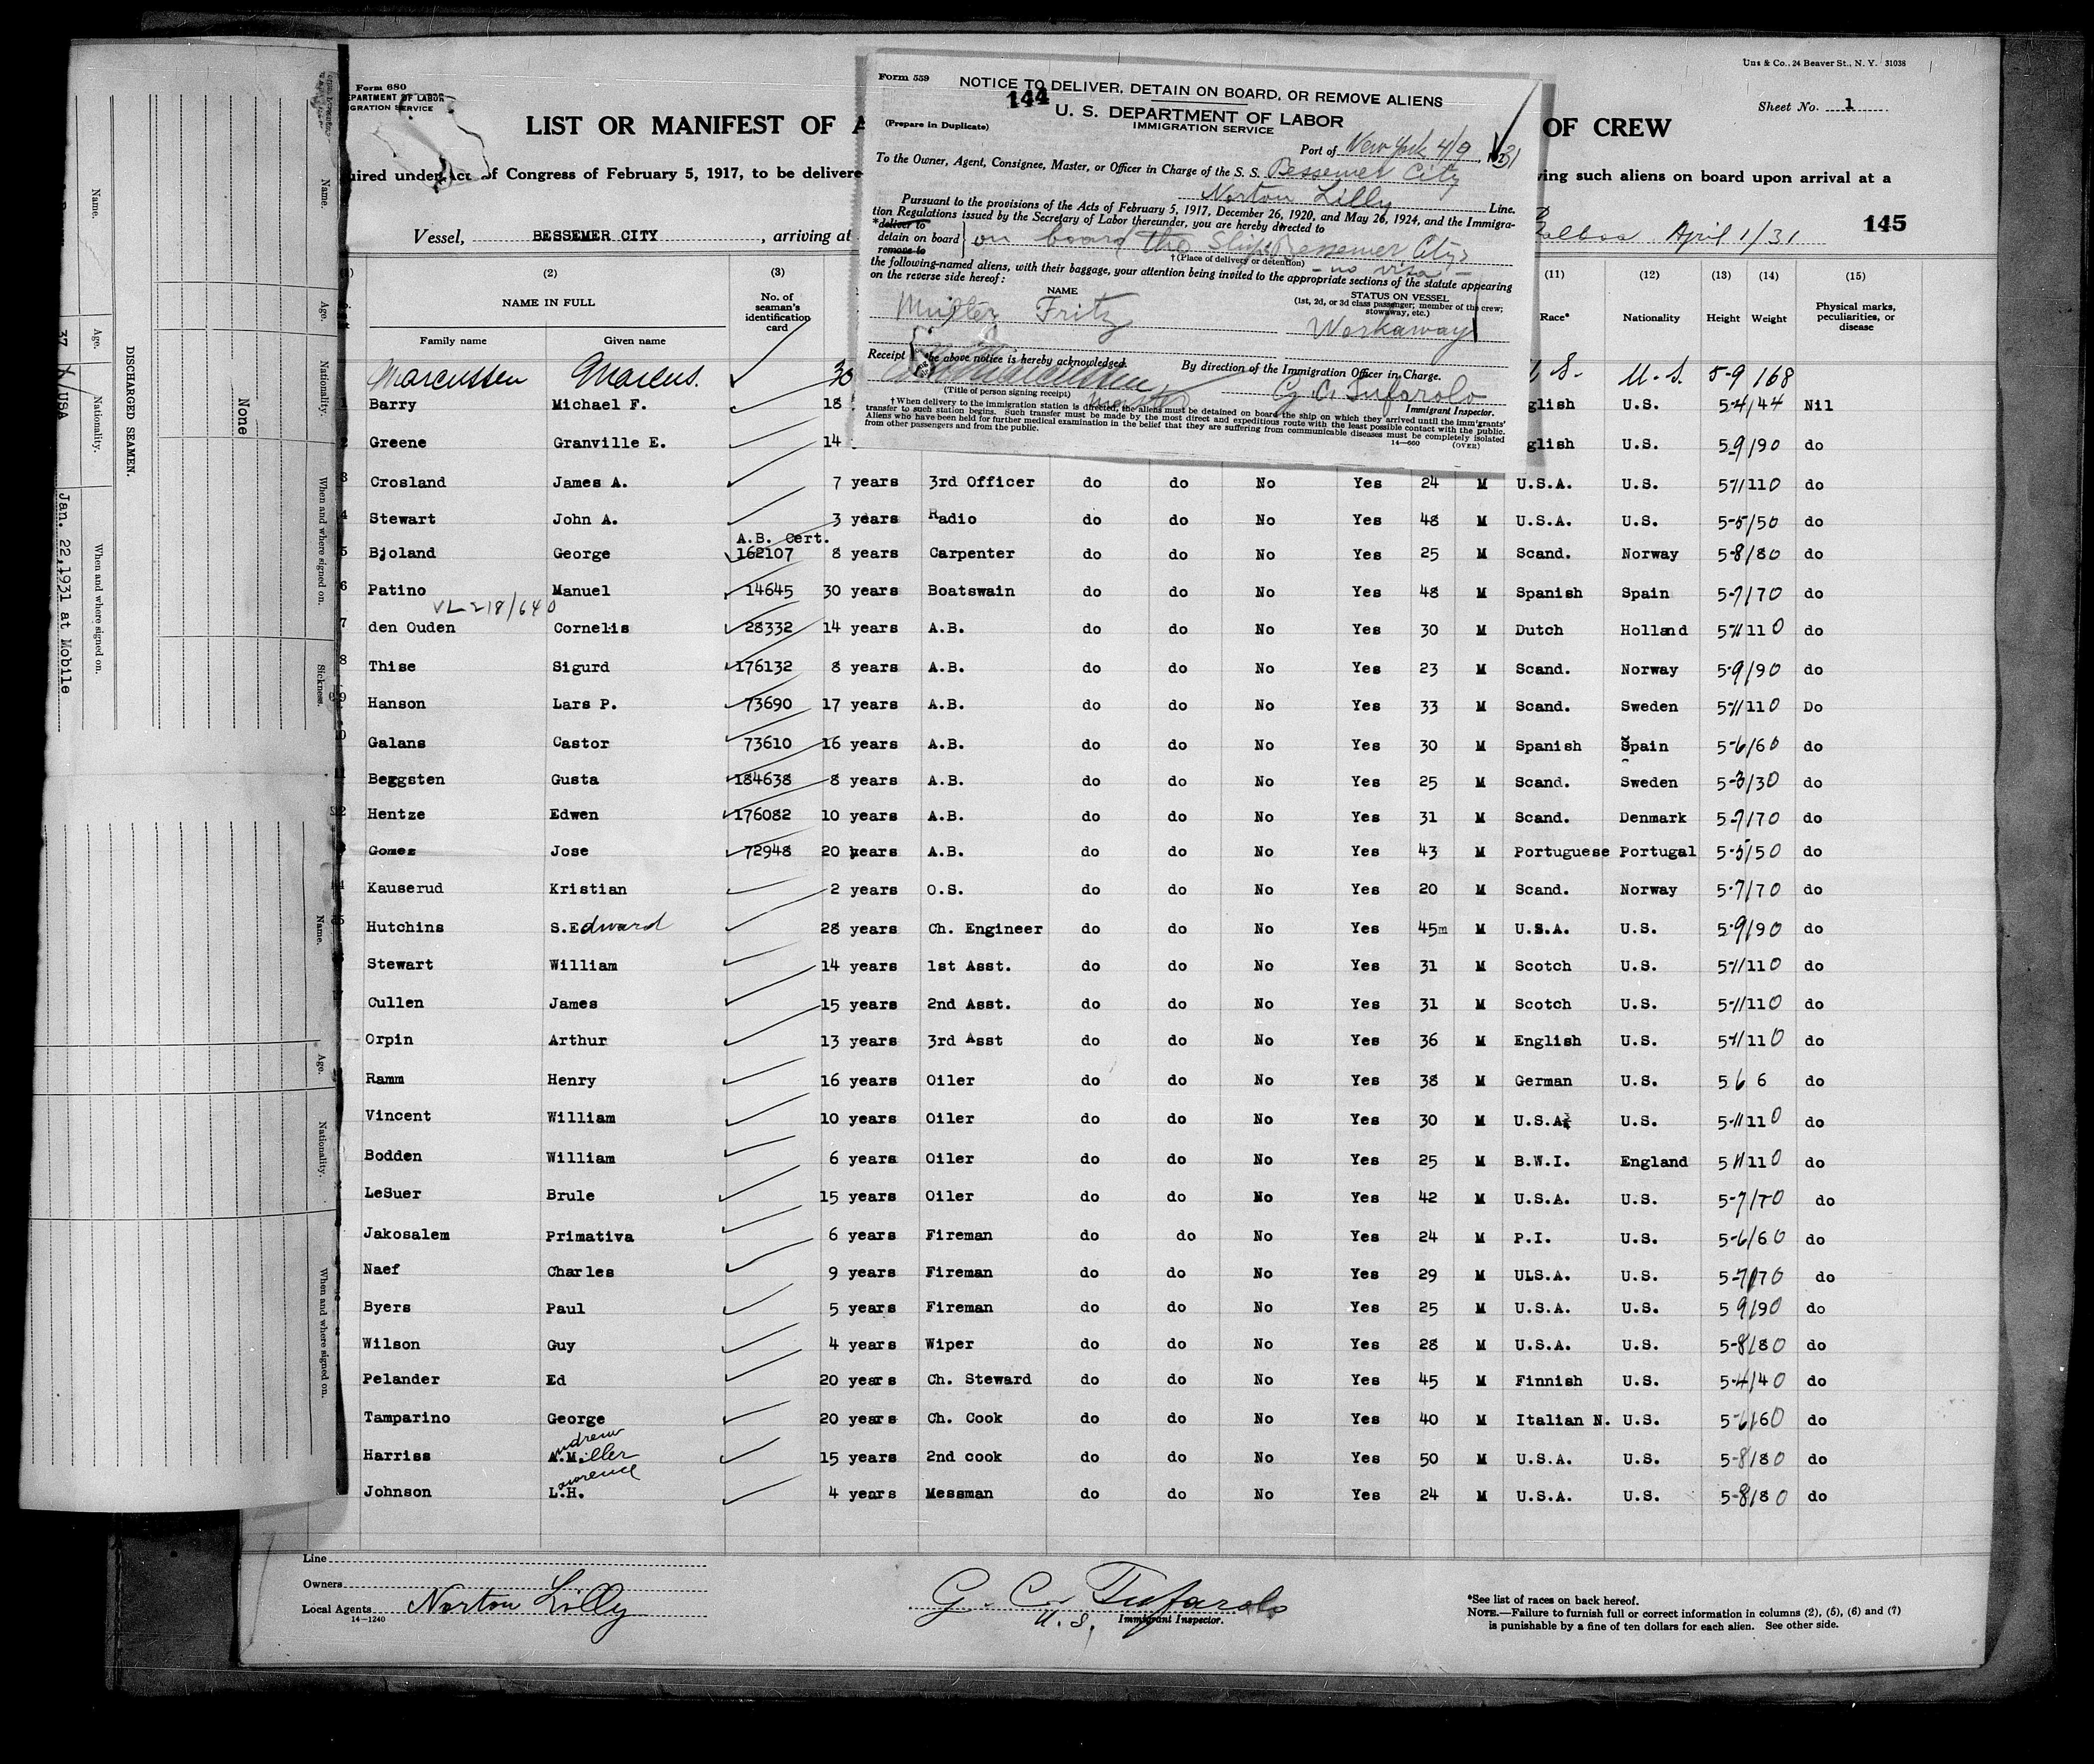 Uns & Co., 24 Beaver St., N. Y. 31038
Form 680
DEPARTMENT OF LABOR
IMMIGRATION SERVICE
Sheet No. 1
LIST OR MANIFEST OF A
OF CREW
uired under Act of Congress of February 5, 1917, to be delivere
ving such aliens on board upon arrival at a
Vessel, BESSEMER CITY, arriving at
Balboa April 1/31
145
Form 559
NOTICE TO DELIVER, DETAIN ON BOARD, OR REMOVE ALIENS
144
U. S. DEPARTMENT OF LABOR
IMMIGRATION SERVICE
(Prepare in Duplicate)
Port of New York 4/9, 31
To the Owner, Agent, Consignee, Master, or Officer in Charge of the S. S. Bessemer City
Norton Lilly Line.
Pursuant to the provisions of the Acts of February 5, 1917, December 26, 1920, and May 26, 1924, and the Immigra-
tion Regulations issued by the Secretary of Labor thereunder, you are hereby directed to
*deliver to
detain on board
remove to
on board the Ship Bessemer City
†(Place of delivery or detention) - no visa -
the following-named aliens, with their baggage, your attention being invited to the appropriate sections of the statute appearing
on the reverse side hereof:
NAME
STATUS ON VESSEL
(1st, 2d, or 3d class passenger; member of the crew;
stowaway, etc.)
Fritz Workaway
Receipt of the above notice is hereby acknowledged.
By direction of the Immigration Officer in Charge.
G. C. Tufarolo
(Title of person signing receipt) Master
Immigrant Inspector.
†When delivery to the immigration station is directed, the aliens must be detained on board the ship on which they arrived until the immigrants'
transfer to such station begins. Such transfer must be made by the most direct and expeditious route with the least possible contact with the public.
Aliens who have been held for further medical examination in the belief that they are suffering from communicable diseases must be completely isolated
from other passengers and from the public.
14—660 (OVER)
(2) (3) (11) (12) (13) (14) (15)
NAME IN FULL
Family name Given name
No. of seaman's identification card
Race* Nationality Height Weight Physical marks, peculiarities, or disease
Marcussen Marcus. 30 U. S. U. S. 5-9 168
Barry Michael F. 18 glish U.S. 5-4/44 Nil
2 Greene Granville E. 14 glish U.S. 5-9/90 do
3 Crosland James A. 7 years 3rd Officer do do No Yes 24 M U.S.A. U.S. 5-11/110 do
4 Stewart John A. 3 years Radio do do No Yes 48 M U.S.A. U.S. 5-5/50 do
A.B. Cert.
5 Bjoland George 162107 8 years Carpenter do do No Yes 25 M Scand. Norway 5-8/80 do
6 Patino Manuel 14645 30 years Boatswain do do No Yes 48 M Spanish Spain 5-7/70 do
VL 218/640
7 den Ouden Cornelis 28332 14 years A.B. do do No Yes 30 M Dutch Holland 5-11/110 do
8 Thise Sigurd 176132 8 years A.B. do do No Yes 23 M Scand. Norway 5-9/90 do
9 Hanson Lars P. 73690 17 years A.B. do do No Yes 33 M Scand. Sweden 5-11/110 Do
10 Galans Castor 73610 16 years A.B. do do No Yes 30 M Spanish Spain 5-6/60 do
11 Beggsten Gusta 184638 8 years A.B. do do No Yes 25 M Scand. Sweden 5-3/30 do
12 Hentze Edwen 176082 10 years A.B. do do No Yes 31 M Scand. Denmark 5-7/70 do
Gomez Jose 72948 20 years A.B. do do No Yes 43 M Portuguese Portugal 5-5/50 do
Kauserud Kristian 2 years O.S. do do No Yes 20 M Scand. Norway 5-7/70 do
Hutchins S.Edward 28 years Ch. Engineer do do No Yes 45m M U.S.A. U.S. 5-9/90 do
Stewart William 14 years 1st Asst. do do No Yes 31 M Scotch U.S. 5-11/110 do
Cullen James 15 years 2nd Asst. do do No Yes 31 M Scotch U.S. 5-11/110 do
Orpin Arthur 13 years 3rd Asst do do No Yes 36 M English U.S. 5-11/110 do
Ramm Henry 16 years Oiler do do No Yes 38 M German U.S. 5 6 6 do
Vincent William 10 years Oiler do do No Yes 30 M U.S.A. U.S. 5-11/110 do
Bodden William 6 years Oiler do do No Yes 25 M B.W.I. England 5 11/110 do
LeSuer Brule 15 years Oiler do do No Yes 42 M U.S.A. U.S. 5-7/70 do
Jakosalem Primativa 6 years Fireman do do No Yes 24 M P.I. U.S. 5-6/60 do
Naef Charles 9 years Fireman do do No Yes 29 M ULS.A. U.S. 5-7/70 do
Byers Paul 5 years Fireman do do No Yes 25 M U.S.A. U.S. 5 9/90 do
Wilson Guy 4 years Wiper do do No Yes 28 M U.S.A. U.S. 5-8/80 do
Pelander Ed 20 years Ch. Steward do do No Yes 45 M Finnish U.S. 5-4/40 do
Tamparino George 20 years Ch. Cook do do No Yes 40 M Italian N. U.S. 5-6/60 do
Harriss Andrew A.Miller 15 years 2nd cook do do No Yes 50 M U.S.A. U.S. 5-8/80 do
Johnson Lawrence L.H. 4 years Messman do do No Yes 24 M U.S.A. U.S. 5-8/80 do
Line
Owners
Local Agents Norton Lilly
14—1240
G. C. Tufarolo
U. S. Immigrant Inspector.
*See list of races on back hereof.
NOTE.—Failure to furnish full or correct information in columns (2), (5), (6) and (7)
is punishable by a fine of ten dollars for each alien. See other side.
DISCHARGED SEAMEN.
Name. Age. Nationality. When and where signed on.
37 USA Jan. 22,1931 at Mobile
None
Name. Age. Nationality. When and where signed on. Sickness.
Name. Age. Nationality. When and where signed on.